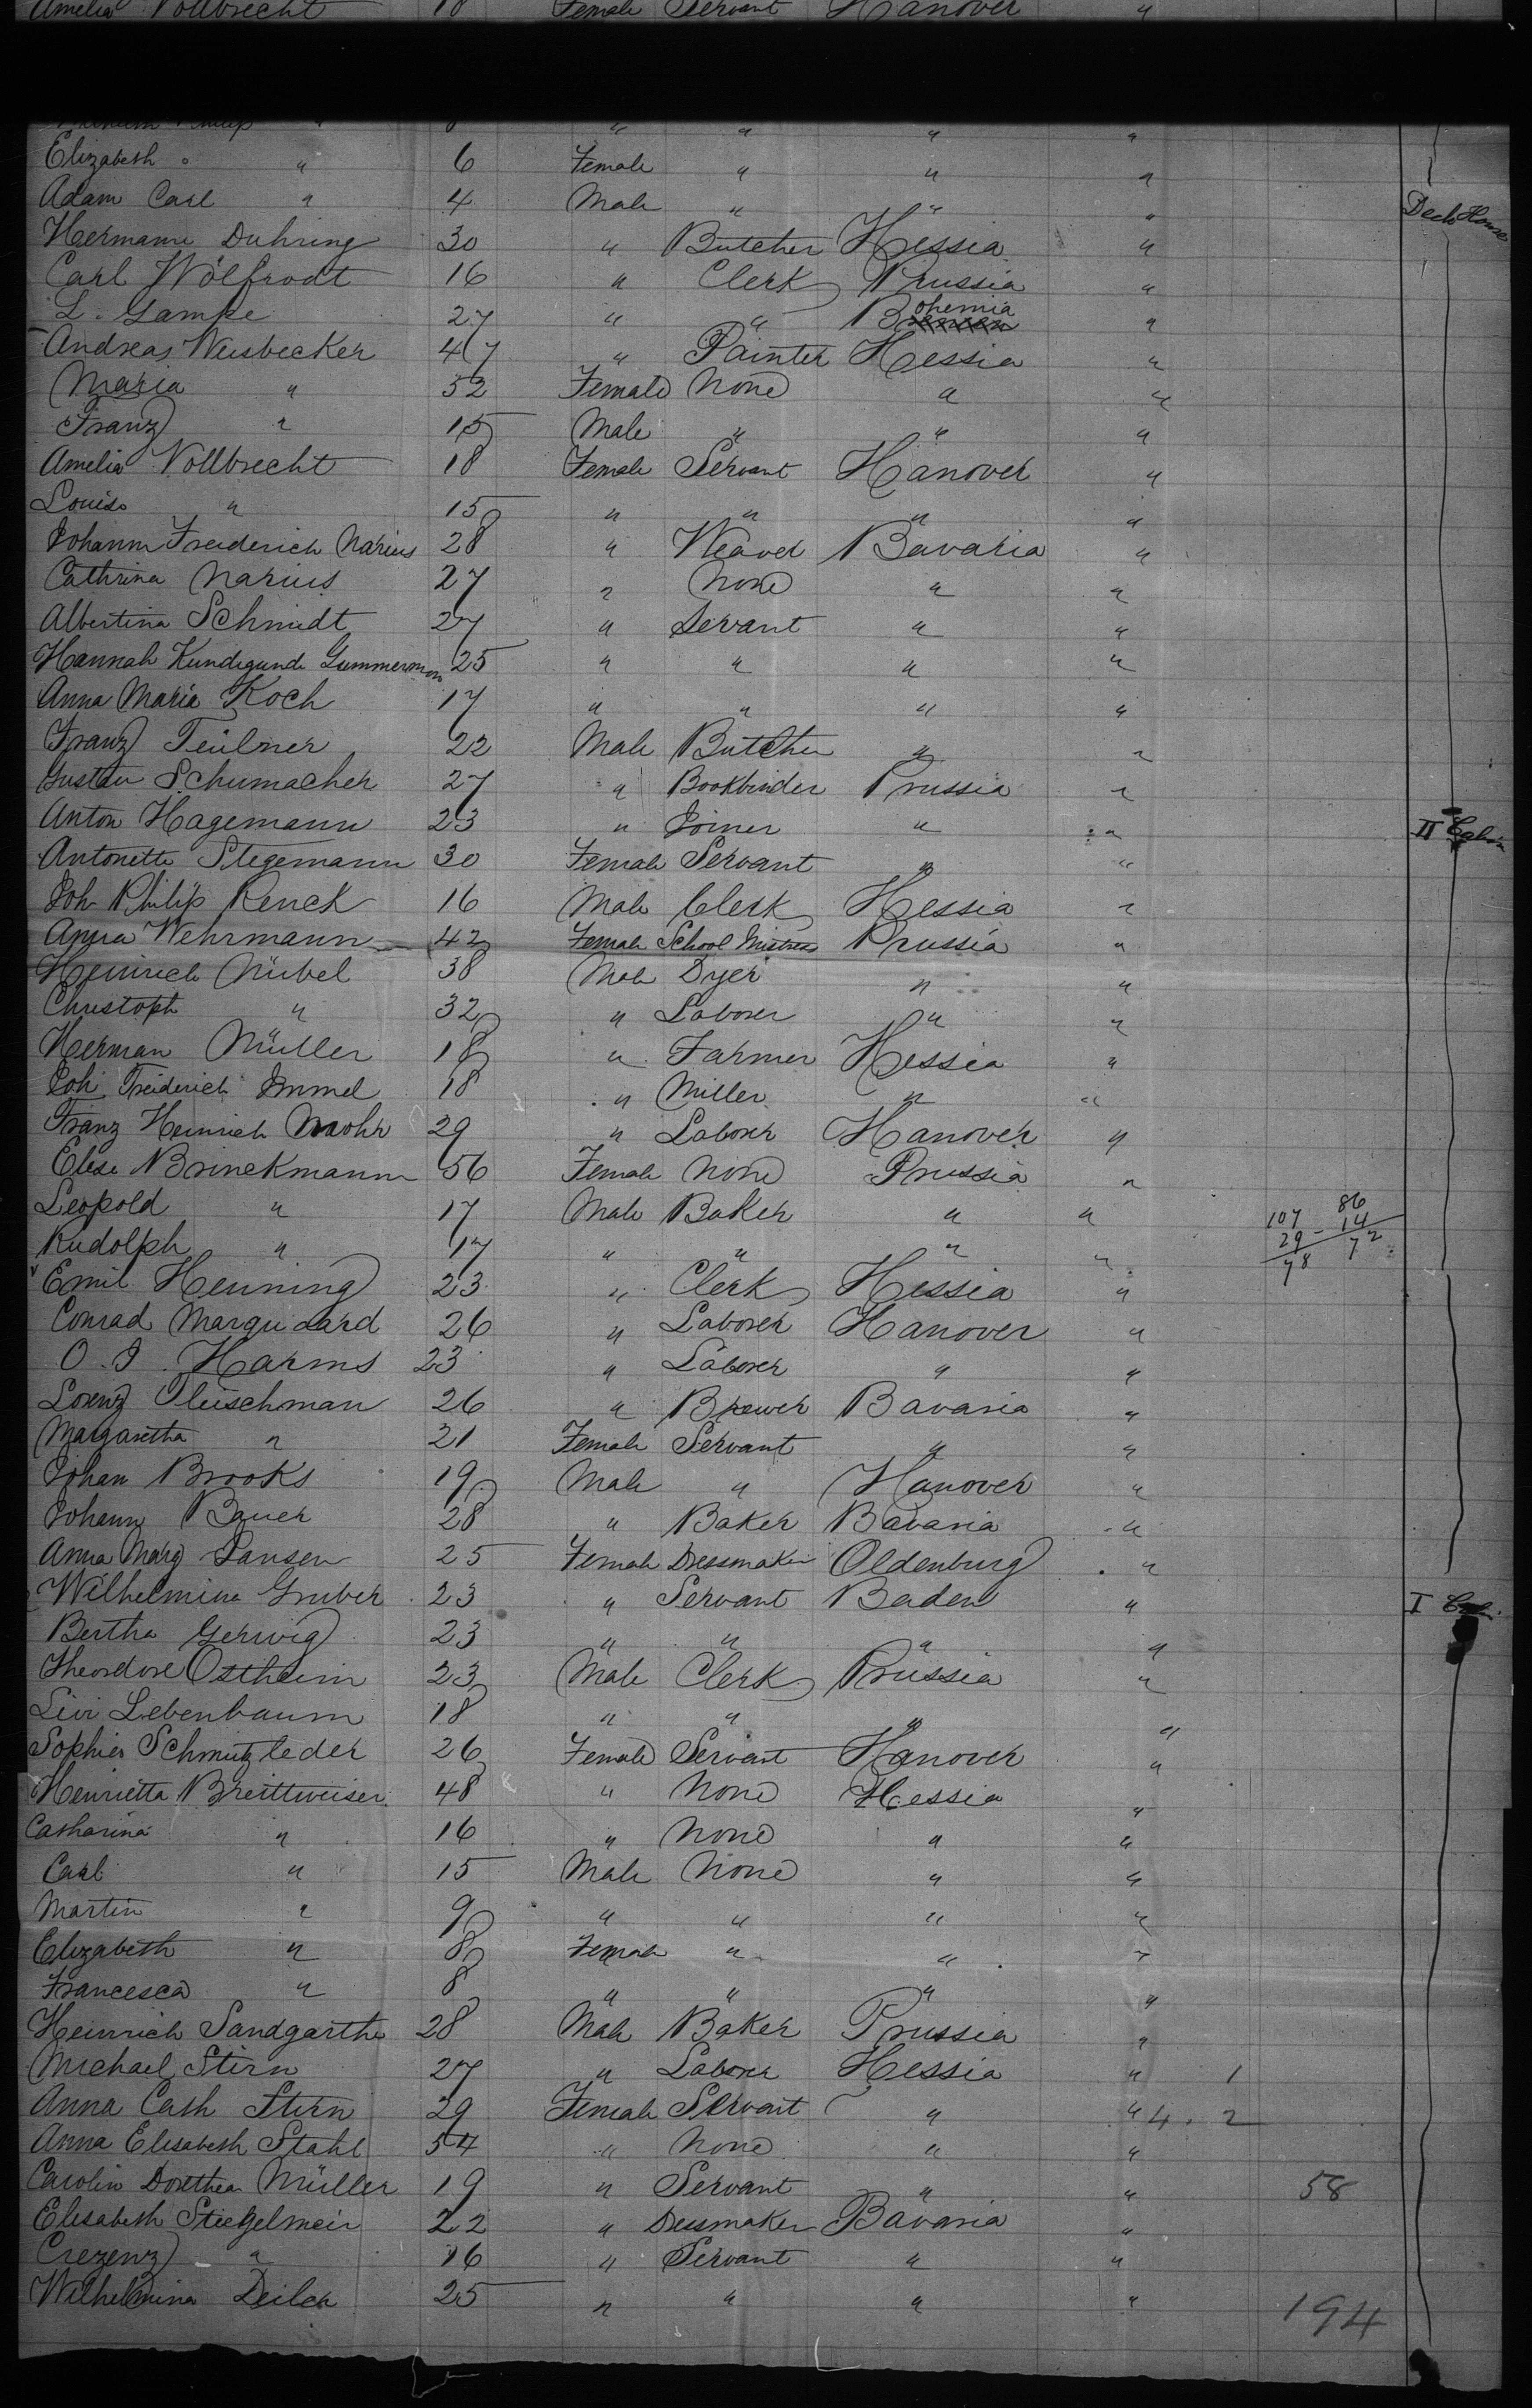 Amelia Vollbrecht 18 Female Servant Hanover "
" " " "
Elizabeth " 6 Female " " "
Adam Carl " 4 Male " " " Deck House
Hermann Duhring 30 " Butcher Hessia "
Carl Wolfrodt 16 " Clerk Prussia "
L. Gampe 27 " " Bohemia "
Andreas Weisbecker 47 " Painter Hessia "
Maria " 52 Female None " "
Franz " 15 Male " " "
Amelia Vollbrecht 18 Female Servant Hanover "
Louise " 15 " " " "
Johann Freiderich Narius 28 " Weaver Bavaria "
Cathrina Narius 27 " None " "
Albertina Schmidt 27 " Servant " "
Hannah Kundegunde Gummerman 25 " " " "
Anna Maria Koch 17 " " " "
Franz Teulner 22 Male Butcher " "
Gustav Schumacher 27 " Bookbinder Prussia "
Anton Hagemann 23 " Joiner " " II Cabin
Antonette Stegemann 30 Female Servant " "
Joh Philip Renck 16 Male Clerk Hessia "
Anna Wehrmann 42 Female School Mistress Prussia "
Heinrich Nübel 38 Male Dyer " "
Christoph " 32 " Laborer " "
Herman Müller 18 " Farmer Hessia "
Joh. Freiderich Immel 18 " Miller " "
Franz Heinrich Mohr 29 " Laborer Hanover "
Elise Brinckmann 56 Female None Prussia "
Leopold " 17 Male Baker " " 107 86
Rudolph " 17 " " " " 29 - 14
Emil Henning 23 " Clerk Hessia " 78 72
Conrad Marquard 26 " Laborer Hanover "
O. J. Harms 23 " Laborer " "
Lorenz Fleischman 26 " Brewer Bavaria "
Margaretha " 21 Female Servant " "
Johan Brooks 19 Male " Hanover "
Johann Bauer 28 " Baker Bavaria "
Anna Marg Jansen 25 Female Dressmaker Oldenburg "
Wilhelmina Gruber 23 " Servant Baden " I
Bertha Gerwig 23 " " " "
Theodore Ostheim 23 Male Clerk Prussia "
Livi Lebenbaum 18 " " " "
Sophia Schmutzleder 26 Female Servant Hanover "
Henrietta Breittweiser 48 " None Hessia "
Catharina " 16 " None " "
Carl " 15 Male None " "
Martin " 9 " " " "
Elizabeth " 8 Female " " "
Francesca " 8 " " " "
Heinrich Sandgarthe 28 Male Baker Prussia "
Michael Stirn 27 " Laborer Hessia " 1
Anna Cath Stirn 29 Female Servant " " 4. 2
Anna Elisabesh Stahl 54 " None " "
Carolin Dorethea Müller 19 " Servant " " 58
Elisabesh Stiegelmeir 22 " Dressmaker Bavaria "
Crezenz " 16 " Servant " "
Wilhelmina Deilch 25 " " " " 194